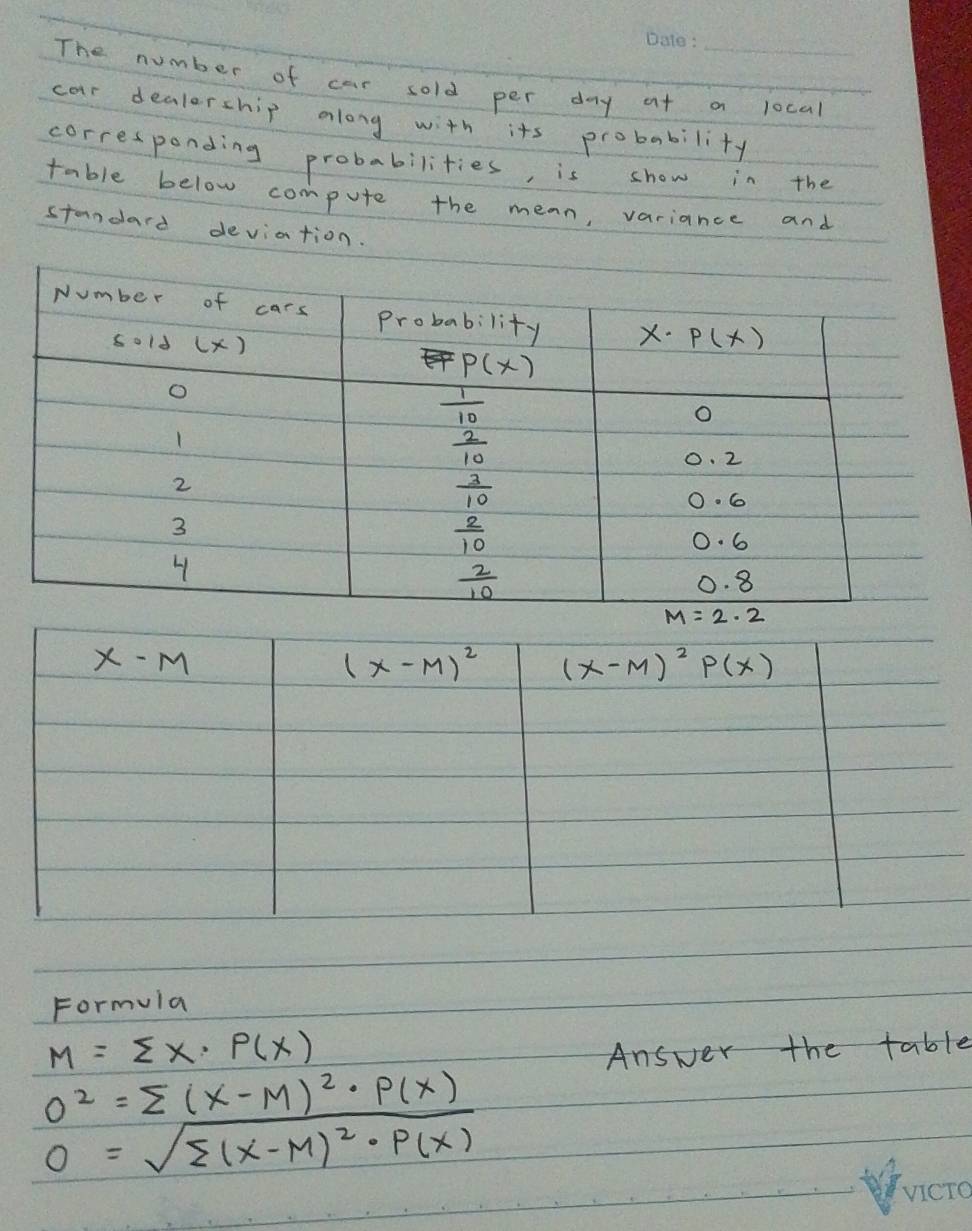 Date :
The number of car sold per day at a local
car dealership along with its probability
corresponding probabilities, is show in the
table below compute the mean, variance and
standard deviation.
Number of cars sold (x) Probability P(x) X · P(x)
0 1/10 0
1 2/10 0.2
2 3/10 0.6
3 2/10 0.6
4 2/10 0.8
M = 2.2
X - M (x - M)² (x - M)² P(x)
Formula
M = Σ X · P(X)
O² = Σ (X - M)² · P(X)
O = √Σ(X - M)² · P(X)
Answer the table
VICTO